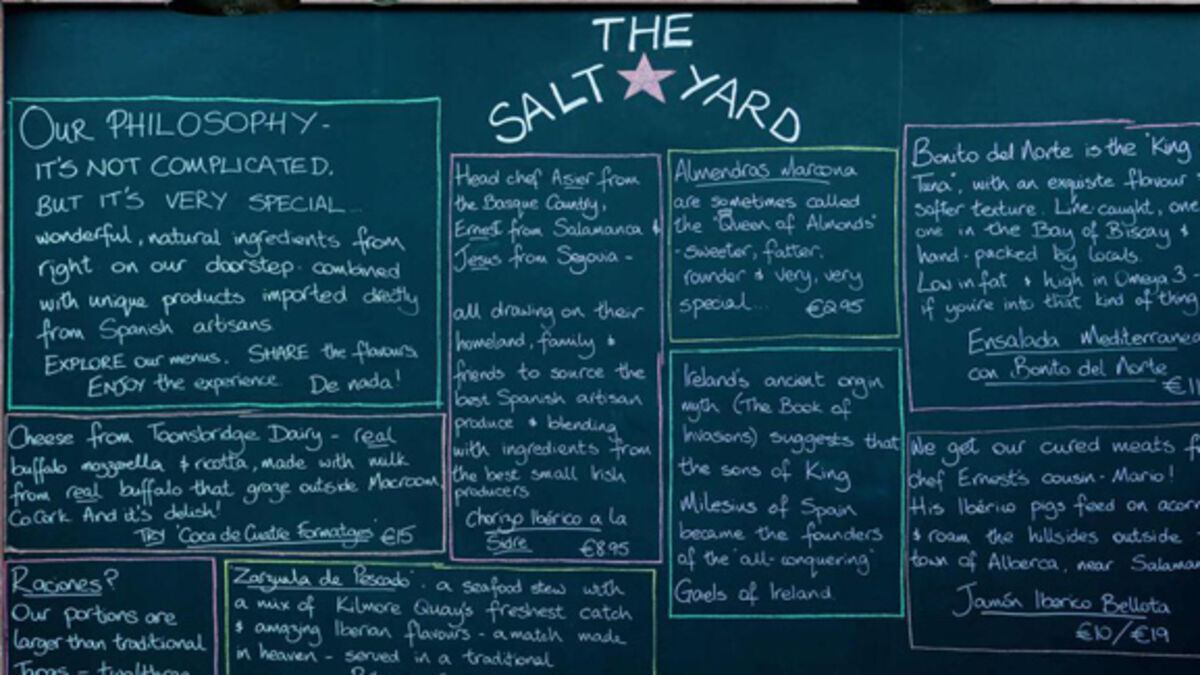 THE
SALT YARD
OUR PHILOSOPHY-
IT'S NOT COMPLICATED.
BUT IT'S VERY SPECIAL...
wonderful, natural ingredients from
right on our doorstep combined
with unique products imported directly
from Spanish artisans
EXPLORE our menus. SHARE the flavours.
ENJOY the experience. De nada!
Cheese from Toonsbridge Dairy - real
buffalo mozzarella & ricotta, made with milk
from real buffalo that graze outside Macroom,
Co Cork. And it's delish!
TRY 'Coca de Cuatre Formatges' €15
Raciones?
Our portions are
larger than traditional
Tapas -
Head chef Asier from
the Basque Country,
Ernest from Salamanca &
Jesus from Segovia -
all drawing on their
homeland, family &
friends to source the
best Spanish artisan
produce & blending
with ingredients from
the best small Irish
producers
Chorizo Ibérico a la
Sidre €8.95
Zarzuela de Pescado - a seafood stew with
a mix of Kilmore Quay's freshest catch
& amazing Iberian flavours - a match made
in heaven - served in a traditional
Almendras Marcona
are sometimes called
the "Queen of Almonds"
- sweeter, fatter,
rounder & very, very
special... €2.95
Ireland's ancient orgin
myth (The Book of
Invasions) suggests that
the sons of King
Milesius of Spain
became the founders
of the "all-conquering"
Gaels of Ireland.
Bonito del Norte is the "King
Tuna", with an exquisite flavour
softer texture. Line caught, one
one in the Bay of Biscay &
hand-packed by locals.
Low in fat & high in Omega 3 -
if you're into that kind of thing
Ensalada Mediterranea
con Bonito del Norte
€1
We get our cured meats
chef Ernest's cousin - Mario!
His Ibérico pigs feed on acor
& roam the hillsides outside
town of Alberca, near Salaman
Jamón Ibérico Bellota
€10/€19